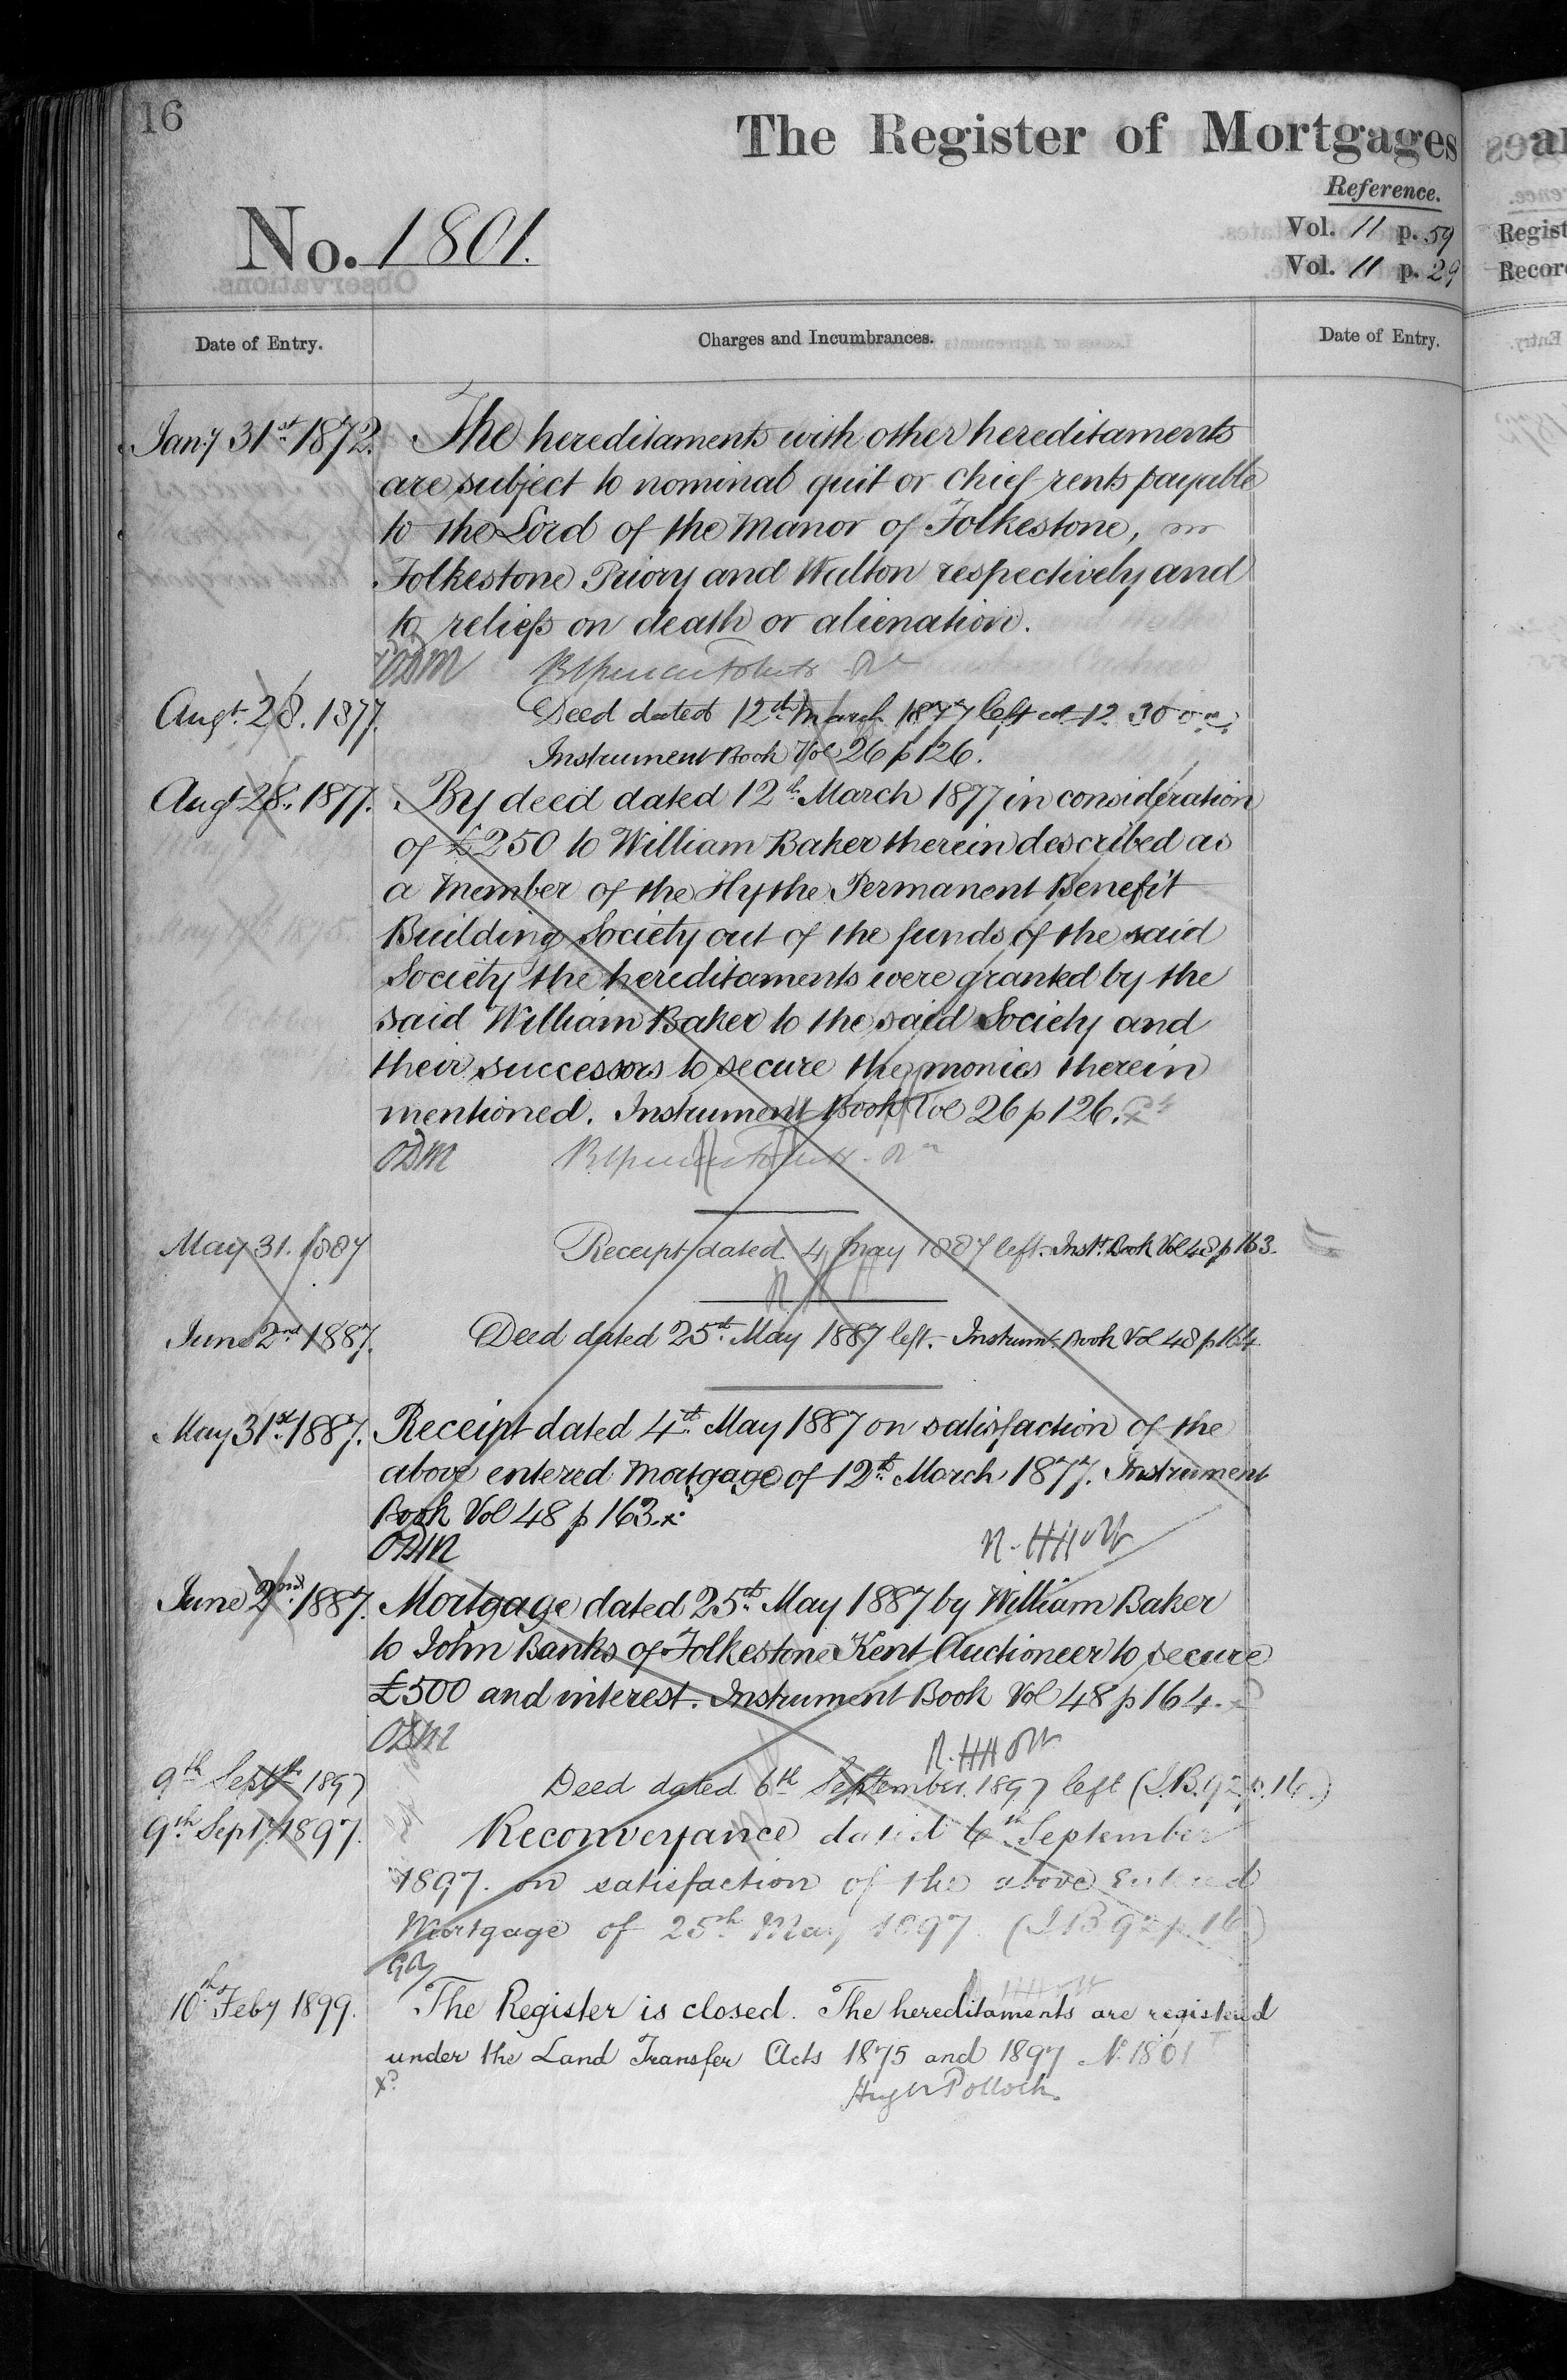 16
The Register of Mortgages
Reference.
No. 1801.
Vol. 11 p. 59
Vol. 11 p. 29
Regist
Record
Date of Entry.
Charges and Incumbrances.
Date of Entry.
Jany 31st 1872.
The hereditaments with other hereditaments
are subject to nominal quit or chief rents payable
to the Lord of the Manor of Folkestone,
Folkestone Priory and Walton respectively and
to reliefs on death or alienation.
ODM
Augt. 28. 1877.
Deed dated 12th March 1877 left at 12. 30
Instrument Book Vol 26 p 126.
Augt 28. 1877.
By deed dated 12th March 1877 in consideration
of £250 to William Baker therein described as
a member of the Hythe Permanent Benefit
Building Society out of the funds of the said
Society the hereditaments were granted by the
said William Baker to the said Society and
their successors to secure the monies therein
mentioned. Instrument Book Vol 26 p 126.
ODM
May 31. 1887
Receipt dated 4 May 1887 left. Instt. Book Vol 48 p 163.
June 2nd 1887.
Deed dated 25th May 1887 left. Instrumt. Book Vol 48 p 164
May 31st 1887.
Receipt dated 4th May 1887 on satisfaction of the
above entered Mortgage of 12th March 1877. Instrument
Book Vol 48 p 163.
ODM
June 2nd 1887.
Mortgage dated 25th May 1887 by William Baker
to John Banks of Folkestone Kent Auctioneer to secure
£500 and interest. Instrument Book Vol 48 p 164.
ODM
9th Septr. 1897
Deed dated 6th September 1897 left (I.B. 92 p. 16.)
9th Septr. 1897.
Reconveyance dated 6th September
1897. on satisfaction of the above entered
Mortgage of 25th May 1897. (I B 92 p 16)
10th Feby 1899.
The Register is closed. The hereditaments are registered
under the Land Transfer Acts 1875 and 1897 No. 1801
Hugh Pollock.